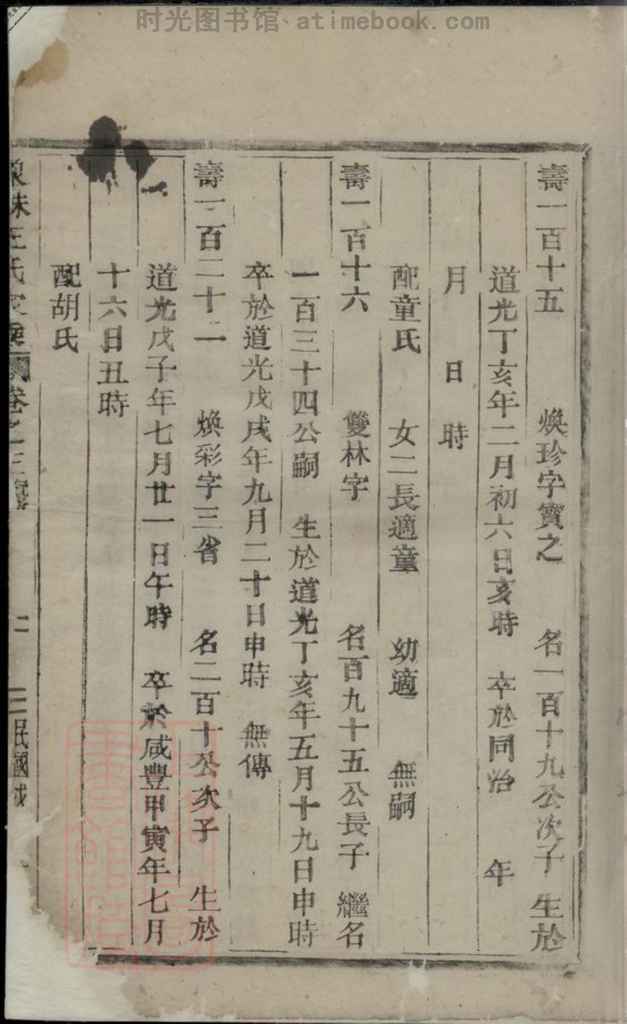 时光图书馆 - atimebook.com
壽一百十五 煥珍字寶之 名一百十九公次子 生於
道光丁亥年二月初六日亥時 卒於同治 年
月 日 時
配童氏 女二長適童 幼適 無嗣
壽一百十六 雙林字 名百九十五公長子 繼名
一百三十四公嗣 生於道光丁亥年五月十九日申時
卒於道光戊戌年九月二十日申時 無傳
壽一百二十二 煥彩字三省 名二百十公次子 生於
道光戊子年七月廿一日午時 卒於咸豐甲寅年七月
十六日丑時
配胡氏
王氏 卷之三 二 三 民國